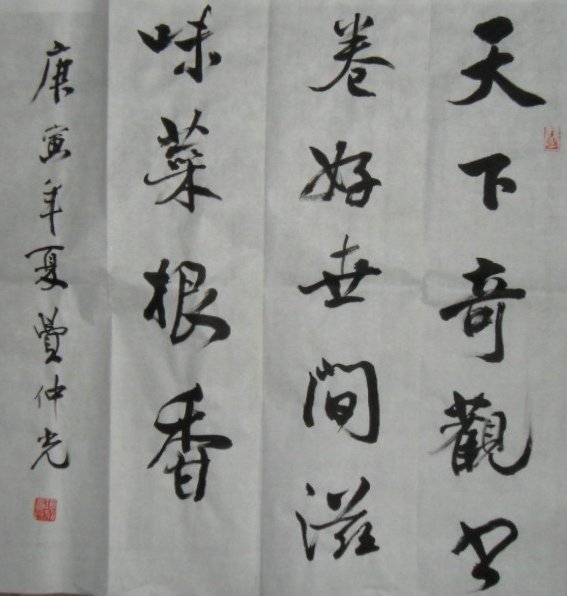 天下奇觀书
卷好世間滋
味菜根香
庚寅年夏費仲光